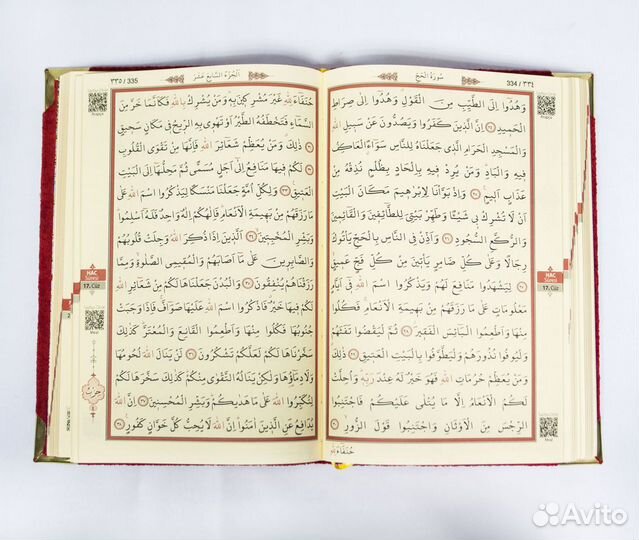 ٣٣٤ / 334
سُورَةُ الْحَجِّ
وَهُدُٓوا اِلَى الطَّيِّبِ مِنَ الْقَوْلِ وَهُدُٓوا اِلٰى صِرَاطِ
الْحَم۪يدِ ﴿٢٤﴾ اِنَّ الَّذ۪ينَ كَفَرُوا وَيَصُدُّونَ عَنْ سَب۪يلِ اللّٰهِ
وَالْمَسْجِدِ الْحَرَامِ الَّذ۪ي جَعَلْنَاهُ لِلنَّاسِ سَوَٓاءًۨ الْعَاكِفُ
ف۪يهِ وَالْبَادِۜ وَمَنْ يُرِدْ ف۪يهِ بِاِلْحَادٍ بِظُلْمٍ نُذِقْهُ مِنْ
عَذَابٍ اَل۪يمٍ ﴿٢٥﴾ وَاِذْ بَوَّأْنَا لِاِبْرٰه۪يمَ مَكَانَ الْبَيْتِ
اَنْ لَا تُشْرِكْ ب۪ي شَيْـًٔا وَطَهِّرْ بَيْتِيَ لِلطَّٓائِف۪ينَ وَالْقَٓائِم۪ينَ
وَالرُّكَّعِ السُّجُودِ ﴿٢٦﴾ وَاَذِّنْ فِي النَّاسِ بِالْحَجِّ يَأْتُوكَ
رِجَالًا وَعَلٰى كُلِّ ضَامِرٍ يَأْت۪ينَ مِنْ كُلِّ فَجٍّ عَم۪يقٍۙ
﴿٢٧﴾ لِيَشْهَدُوا مَنَافِعَ لَهُمْ وَيَذْكُرُوا اسْمَ اللّٰهِ ف۪ٓي اَيَّامٍ
مَعْلُومَاتٍ عَلٰى مَا رَزَقَهُمْ مِنْ بَه۪يمَةِ الْاَنْعَامِۚ فَكُلُوا
مِنْهَا وَاَطْعِمُوا الْبَٓائِسَ الْفَق۪يرَۘ ﴿٢٨﴾ ثُمَّ لْيَقْضُوا تَفَثَهُمْ
وَلْيُوفُوا نُذُورَهُمْ وَلْيَطَّوَّفُوا بِالْبَيْتِ الْعَت۪يقِ ﴿٢٩﴾ ذٰلِكَۗ
وَمَنْ يُعَظِّمْ حُرُمَاتِ اللّٰهِ فَهُوَ خَيْرٌ لَهُ عِنْدَ رَبِّه۪ۜ وَاُحِلَّتْ
لَكُمُ الْاَنْعَامُ اِلَّا مَا يُتْلٰى عَلَيْكُمْ فَاجْتَنِبُوا
الرِّجْسَ مِنَ الْاَوْثَانِ وَاجْتَنِبُوا قَوْلَ الزُّورِۙ ﴿٣٠﴾
حُنَفَٓاءَ لِلّٰهِ
HAC
Sûresi
17. Cüz
Meal
٣٣٥ / 335
اَلْجُزْءُ السَّابِعَ عَشَرَ
حُنَفَٓاءَ لِلّٰهِ غَيْرَ مُشْرِك۪ينَ بِه۪ۜ وَمَنْ يُشْرِكْ بِاللّٰهِ فَكَاَنَّمَا خَرَّ مِنَ
السَّمَٓاءِ فَتَخْطَفُهُ الطَّيْرُ اَوْ تَهْو۪ي بِهِ الرّ۪يحُ ف۪ي مَكَانٍ سَح۪يقٍ
﴿٣١﴾ ذٰلِكَۗ وَمَنْ يُعَظِّمْ شَعَٓائِرَ اللّٰهِ فَاِنَّهَا مِنْ تَقْوَى الْقُلُوبِ
﴿٣٢﴾ لَكُمْ ف۪يهَا مَنَافِعُ اِلٰٓى اَجَلٍ مُسَمًّى ثُمَّ مَحِلُّهَٓا اِلَى الْبَيْتِ
الْعَت۪يقِ۟ ﴿٣٣﴾ وَلِكُلِّ اُمَّةٍ جَعَلْنَا مَنْسَكًا لِيَذْكُرُوا اسْمَ اللّٰهِ عَلٰى
مَا رَزَقَهُمْ مِنْ بَه۪يمَةِ الْاَنْعَامِۜ فَاِلٰهُكُمْ اِلٰهٌ وَاحِدٌ فَلَهُٓ اَسْلِمُواۜ
وَبَشِّرِ الْمُخْبِت۪ينَۙ ﴿٣٤﴾ اَلَّذ۪ينَ اِذَا ذُكِرَ اللّٰهُ وَجِلَتْ قُلُوبُهُمْ
وَالصَّابِر۪ينَ عَلٰى مَٓا اَصَابَهُمْ وَالْمُق۪يمِي الصَّلٰوةِۙ وَمِمَّا
رَزَقْنَاهُمْ يُنْفِقُونَ ﴿٣٥﴾ وَالْبُدْنَ جَعَلْنَاهَا لَكُمْ مِنْ شَعَٓائِرِ اللّٰهِ
لَكُمْ ف۪يهَا خَيْرٌۗ فَاذْكُرُوا اسْمَ اللّٰهِ عَلَيْهَا صَوَٓافَّۚ فَاِذَا وَجَبَتْ
جُنُوبُهَا فَكُلُوا مِنْهَا وَاَطْعِمُوا الْقَانِعَ وَالْمُعْتَرَّۜ كَذٰلِكَ
سَخَّرْنَاهَا لَكُمْ لَعَلَّكُمْ تَشْكُرُونَ ﴿٣٦﴾ لَنْ يَنَالَ اللّٰهَ لُحُومُهَا
وَلَا دِمَٓاؤُ۬هَا وَلٰكِنْ يَنَالُهُ التَّقْوٰى مِنْكُمْۜ كَذٰلِكَ سَخَّرَهَا لَكُمْ
لِتُكَبِّرُوا اللّٰهَ عَلٰى مَا هَدٰيكُمْۜ وَبَشِّرِ الْمُحْسِن۪ينَ ﴿٣٧﴾ اِنَّ اللّٰهَ
يُدَافِعُ عَنِ الَّذ۪ينَ اٰمَنُواۜ اِنَّ اللّٰهَ لَا يُحِبُّ كُلَّ خَوَّانٍ كَفُورٍ۟ ﴿٣٨﴾
HAC
Sûresi
17. Cüz
Meal
حِزْب
Avito